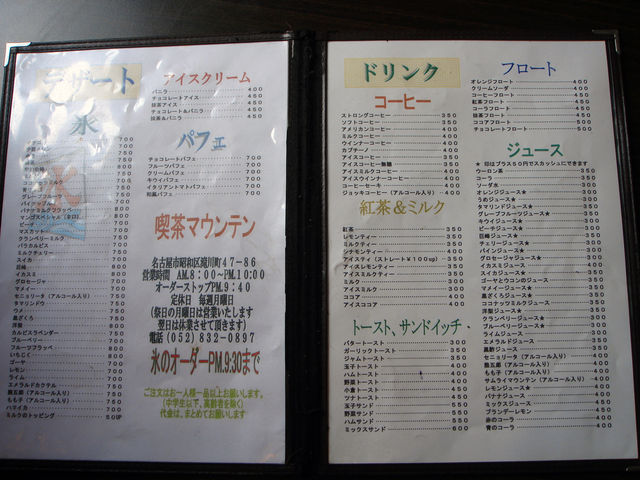 デザート
氷
700
700
750
ココナッツミルク
マンゴスペシャル（辛口）
ピーチ
マスカット
クランベリーミルク
パラカルピス
ミルクチェリー
スイカ
巨峰
イカスミ
グロセージャ
マメイー
セニョリータ（アルコール入り）
タマリンドウ
ウメ
黒ざくろ
洋梨
カルピスラベンダー
ブルーベリー
フルーツフラッペ
いちじく
ゴーヤ
レモン
ライム
エメラルドカクテル
熊五郎（アルコール入り）
もも子（アルコール入り）
ハマイカ
ミルクのトッピング 50UP
アイスクリーム
バニラ 400
チョコレートアイス 450
抹茶アイス 450
チョコレート&バニラ 450
抹茶&バニラ 450
パフェ
チョコレートパフェ 700
フルーツパフェ 700
クリームパフェ 700
キウイパフェ 700
イタリアントマトパフェ 700
和風パフェ 700
喫茶マウンテン
名古屋市昭和区滝川町47-86
営業時間 AM.8:00~PM.10:00
オーダーストップPM.9:40
定休日 毎週月曜日
(祭日の月曜日は営業いたします
翌日は休業させて頂きます)
電話(052)832-0897
氷のオーダーPM.9:30まで
ご注文はお一人様一品以上お願いします。
(中学生以下、高齢者を除く)
代金は、まとめてお願いします
ドリンク
コーヒー
ストロングコーヒー 350
ソフトコーヒー 350
アメリカンコーヒー 350
ミルクコーヒー 400
ウインナーコーヒー 400
カプチーノ 400
アイスコーヒー 350
アイスコーヒー無糖 350
アイスミルクコーヒー 400
アイスウインナーコーヒー 400
コーヒーセーキ 450
ジョッキコーヒー（アルコール入り） 400
紅茶&ミルク
紅茶 350
レモンティー 350
ミルクティー 350
シナモンティー 400
アイスティ（ストレート¥100up） 350
アイスレモンティー 350
アイスミルクティー 350
ミルク 350
アイスミルク 350
ココア 400
アイスココア 400
トースト、サンドイッチ・
バタートースト 300
ガーリックトースト 350
ジャムトースト 350
玉子トースト 400
ハムトースト 400
野菜トースト 400
小倉トースト 450
ツナトースト 450
玉子サンド 500
野菜サンド 500
ハムサンド 550
ミックスサンド 600
フロート
オレンジフロート 400
クリームソーダ 400
コーヒーフロート 450
紅茶フロート 450
コーラフロート 450
抹茶フロート 500
ココアフロート 500
チョコレートフロート 500
ジュース
★ 印はプラス50円でスカッシュにできます
ウーロン茶 350
コーラ 350
ソーダ水 350
オレンジジュース★ 350
うめジュース★ 350
タマリンドジュース★ 350
グレープフルーツジュース★ 350
キウイジュース★ 350
ピーチジュース★ 350
巨峰ジュース★ 350
チェリージュース★ 350
パインジュース★ 350
グロセージャジュース★ 350
イカスミジュース 350
スイカジュース★ 350
ゴーヤとウコンのジュース
マメイージュース★
黒ざくろジュース★
ココナッツミルクジュース
洋梨ジュース★
クランベリージュース★
ブルーベリージュース★
ライムジュース
エメラルドジュース
黒酢ジュース
セニョリータ（アルコール入り）
熊五郎（アルコール入り）
もも子（アルコール入り）
サムライマウンテン（アルコール入り）
レモンジュース★
バナナジュース
ミックスジュース 450
ブランデーレモン 450
赤のコーラ 400
青のコーラ 400